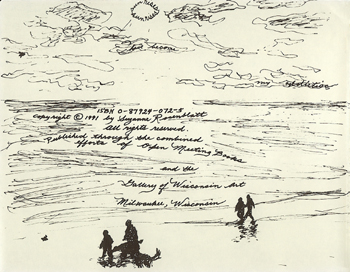 has become
my addiction
ISBN 0-87924-072-5
copyright © 1991 by Suzanne Rosenblatt
All rights reserved.
Published through the combined
efforts of Open Meeting Books
and the
Gallery of Wisconsin Art
Milwaukee, Wisconsin